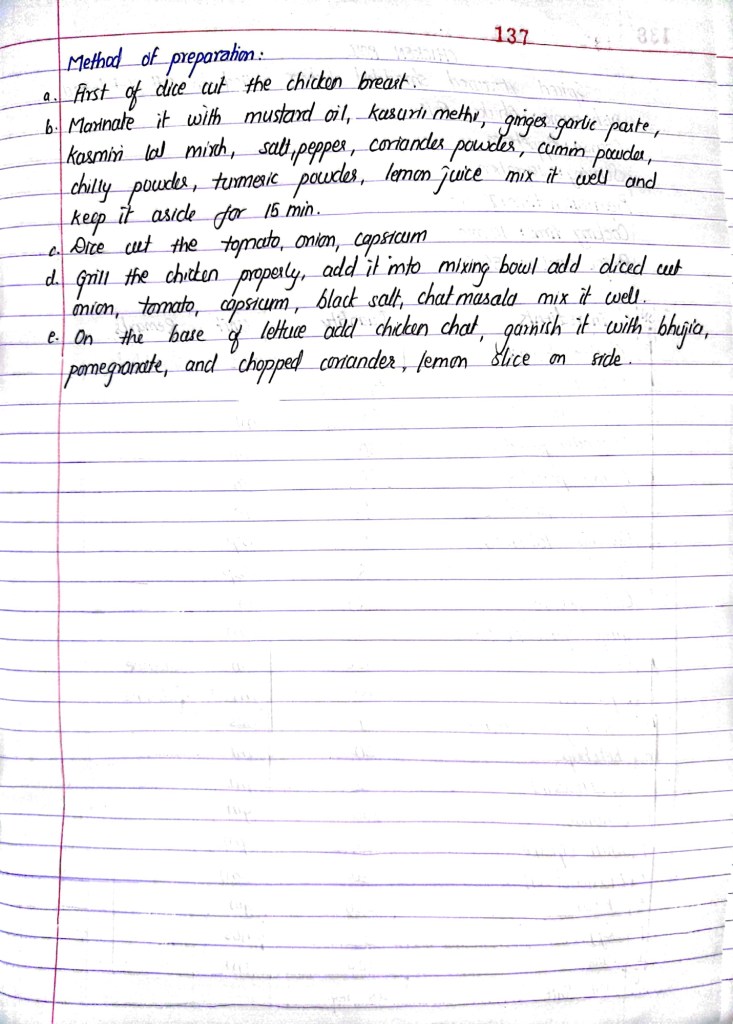 137
Method of preparation:
a. First of dice cut the chicken breast.
b. Marinate it with mustard oil, kasurii methi, ginger garlic paste,
kasmiri lal mirch, salt, pepper, coriander powder, cumin powder,
chilly powder, turmeric powder, lemon juice mix it well and
keep it aside for 15 min.
c. Dice cut the tomato, onion, capsicum
d. Grill the chicken properly, add it into mixing bowl add diced cut
onion, tomato, capsicum, black salt, chat masala mix it well.
e. On the base of lettuce add chicken chat, garnish it with bhujia,
pomegranate, and chopped coriander, lemon slice on side.